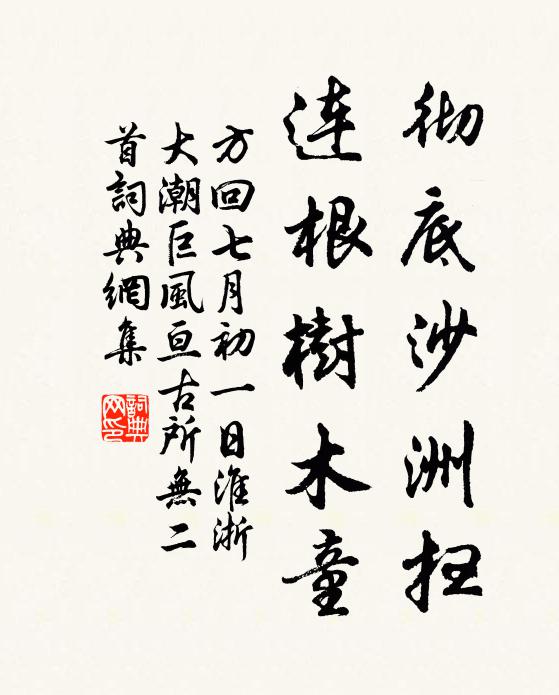 彻底沙洲扭
连根樹木童
方回七月初一日淮浙
大潮巨風亘古所無二
首詞典網集
詞典网印